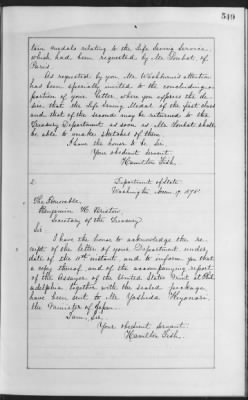 549
tain medals relating to the Life Saving Service,
which had been requested by Mr. Loubat of
Paris.
As requested by you Mr. Washburne's attention
has been specially invited to the concluding
portion of your letter, where you express the de-
sire that the Life Saving Medal of the first class
and that of the second may be returned to the
Treasury Department as soon as Mr. Loubat shall
be able to make sketches of them.
I have the honor to be Sir
Your obedient servant
Hamilton Fish.
2.
Department of State
Washington,
The Honorable,
Benjamin H. Bristow
Secretary of the Treasury.
Sir:
I have the honor to acknowledge the re-
ceipt of the letter of your Department under
date of the instant, and to inform you that
a copy thereof, and of the accompanying report
of the Assayer of the United States Mint at Phil
adelphia together with the sealed package
have been sent to Mr. Yoshida Kiyonari
the Minister of Japan.
I am, Sir,
Your obedient servant.
Hamilton Fish.